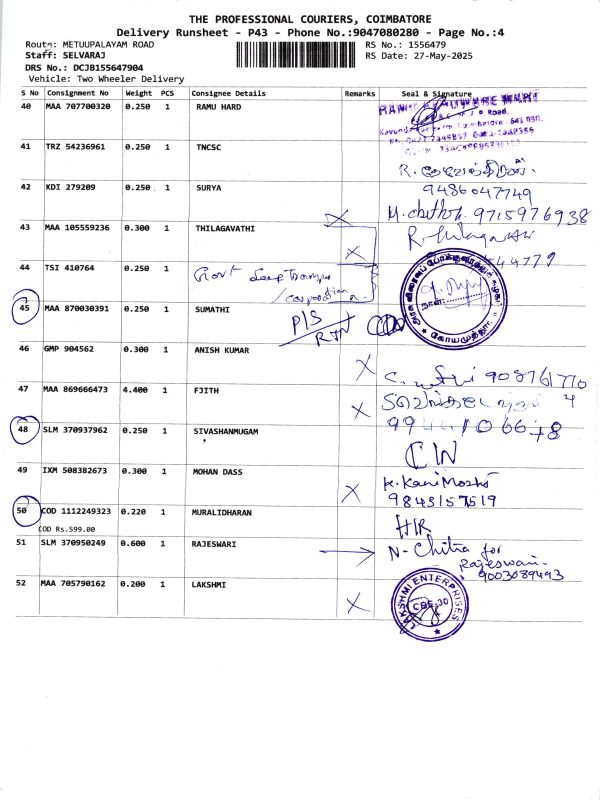 THE PROFESSIONAL COURIERS, COIMBATORE
Delivery Runsheet - P43 - Phone No.:9047080280 - Page No.:4
Route: METUUPALAYAM ROAD RS No.: 1556479
Staff: SELVARAJ RS Date: 27-May-2025
DRS No.: DCJB155647904
Vehicle: Two Wheeler Delivery
S No Consignment No Weight PCS Consignee Details Remarks Seal & Signature
40 MAA 707700320 0.250 1 RAMU HARD
41 TRZ 54236961 0.250 1 TNCSC
42 KDI 279209 0.250 1 SURYA
9486047749
9715976938
43 MAA 105559236 0.300 1 THILAGAVATHI
R. Thilagavathi
44 TSI 410764 0.250 1 Govt
45 MAA 870030391 0.250 1 SUMATHI
46 GMP 904562 0.300 1 ANISH KUMAR
9087617704
47 MAA 869666473 4.400 1 FJITH
48 SLM 370937962 0.250 1 SIVASHANMUGAM
49 IXM 508382673 0.300 1 MOHAN DASS
K. KaniMozhi
9843157519
50 COD 1112249323 0.220 1 MURALIDHARAN
COD Rs.599.00
51 SLM 370950249 0.600 1 RAJESWARI
N- Chitra for
Rajeswari.
9003089493
52 MAA 705790162 0.200 1 LAKSHMI
LAKSHMI ENTERPRISES
CBE-30